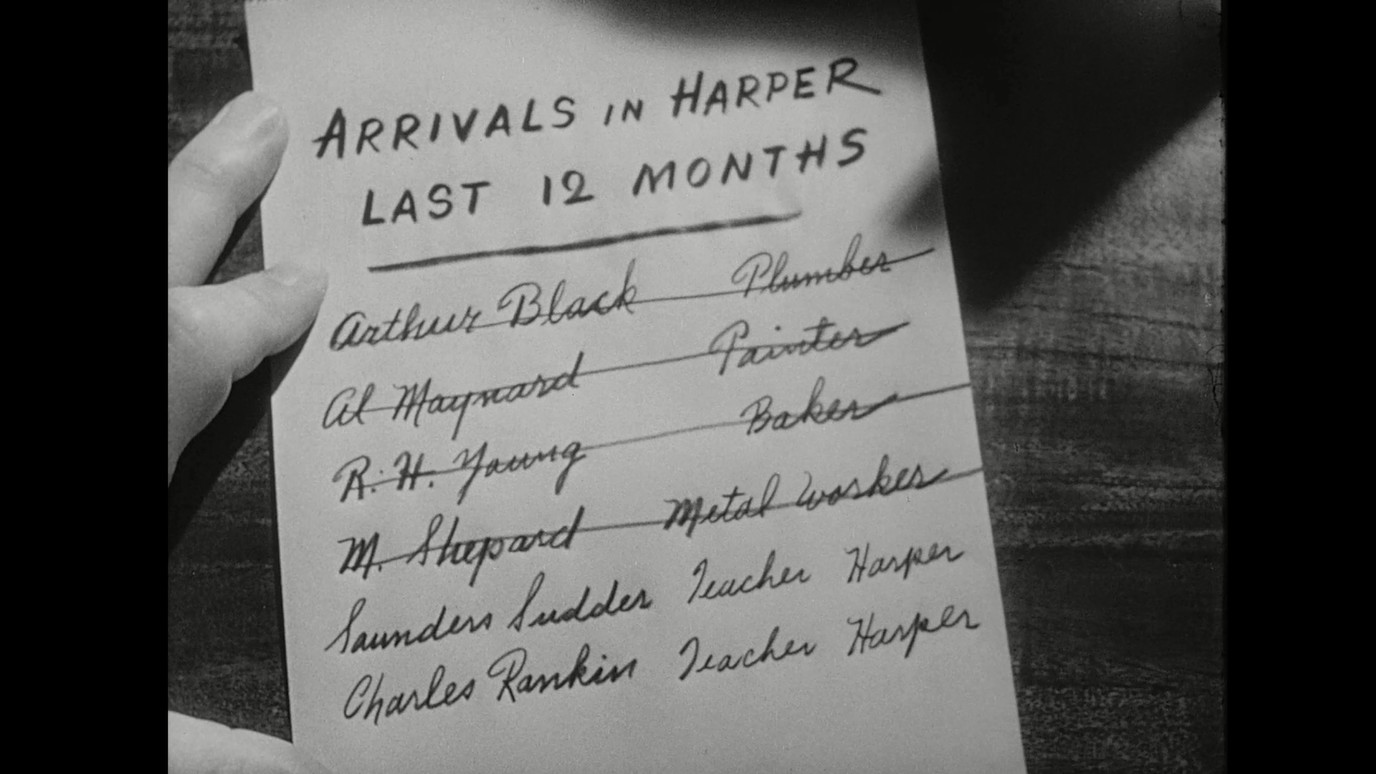 ARRIVALS IN HARPER
LAST 12 MONTHS
Arthur Black Plumber
Al Maynard Painter
R. H. Young Baker
M. Shepard Metal worker
Saunders Sudder Teacher Harper
Charles Rankin Teacher Harper